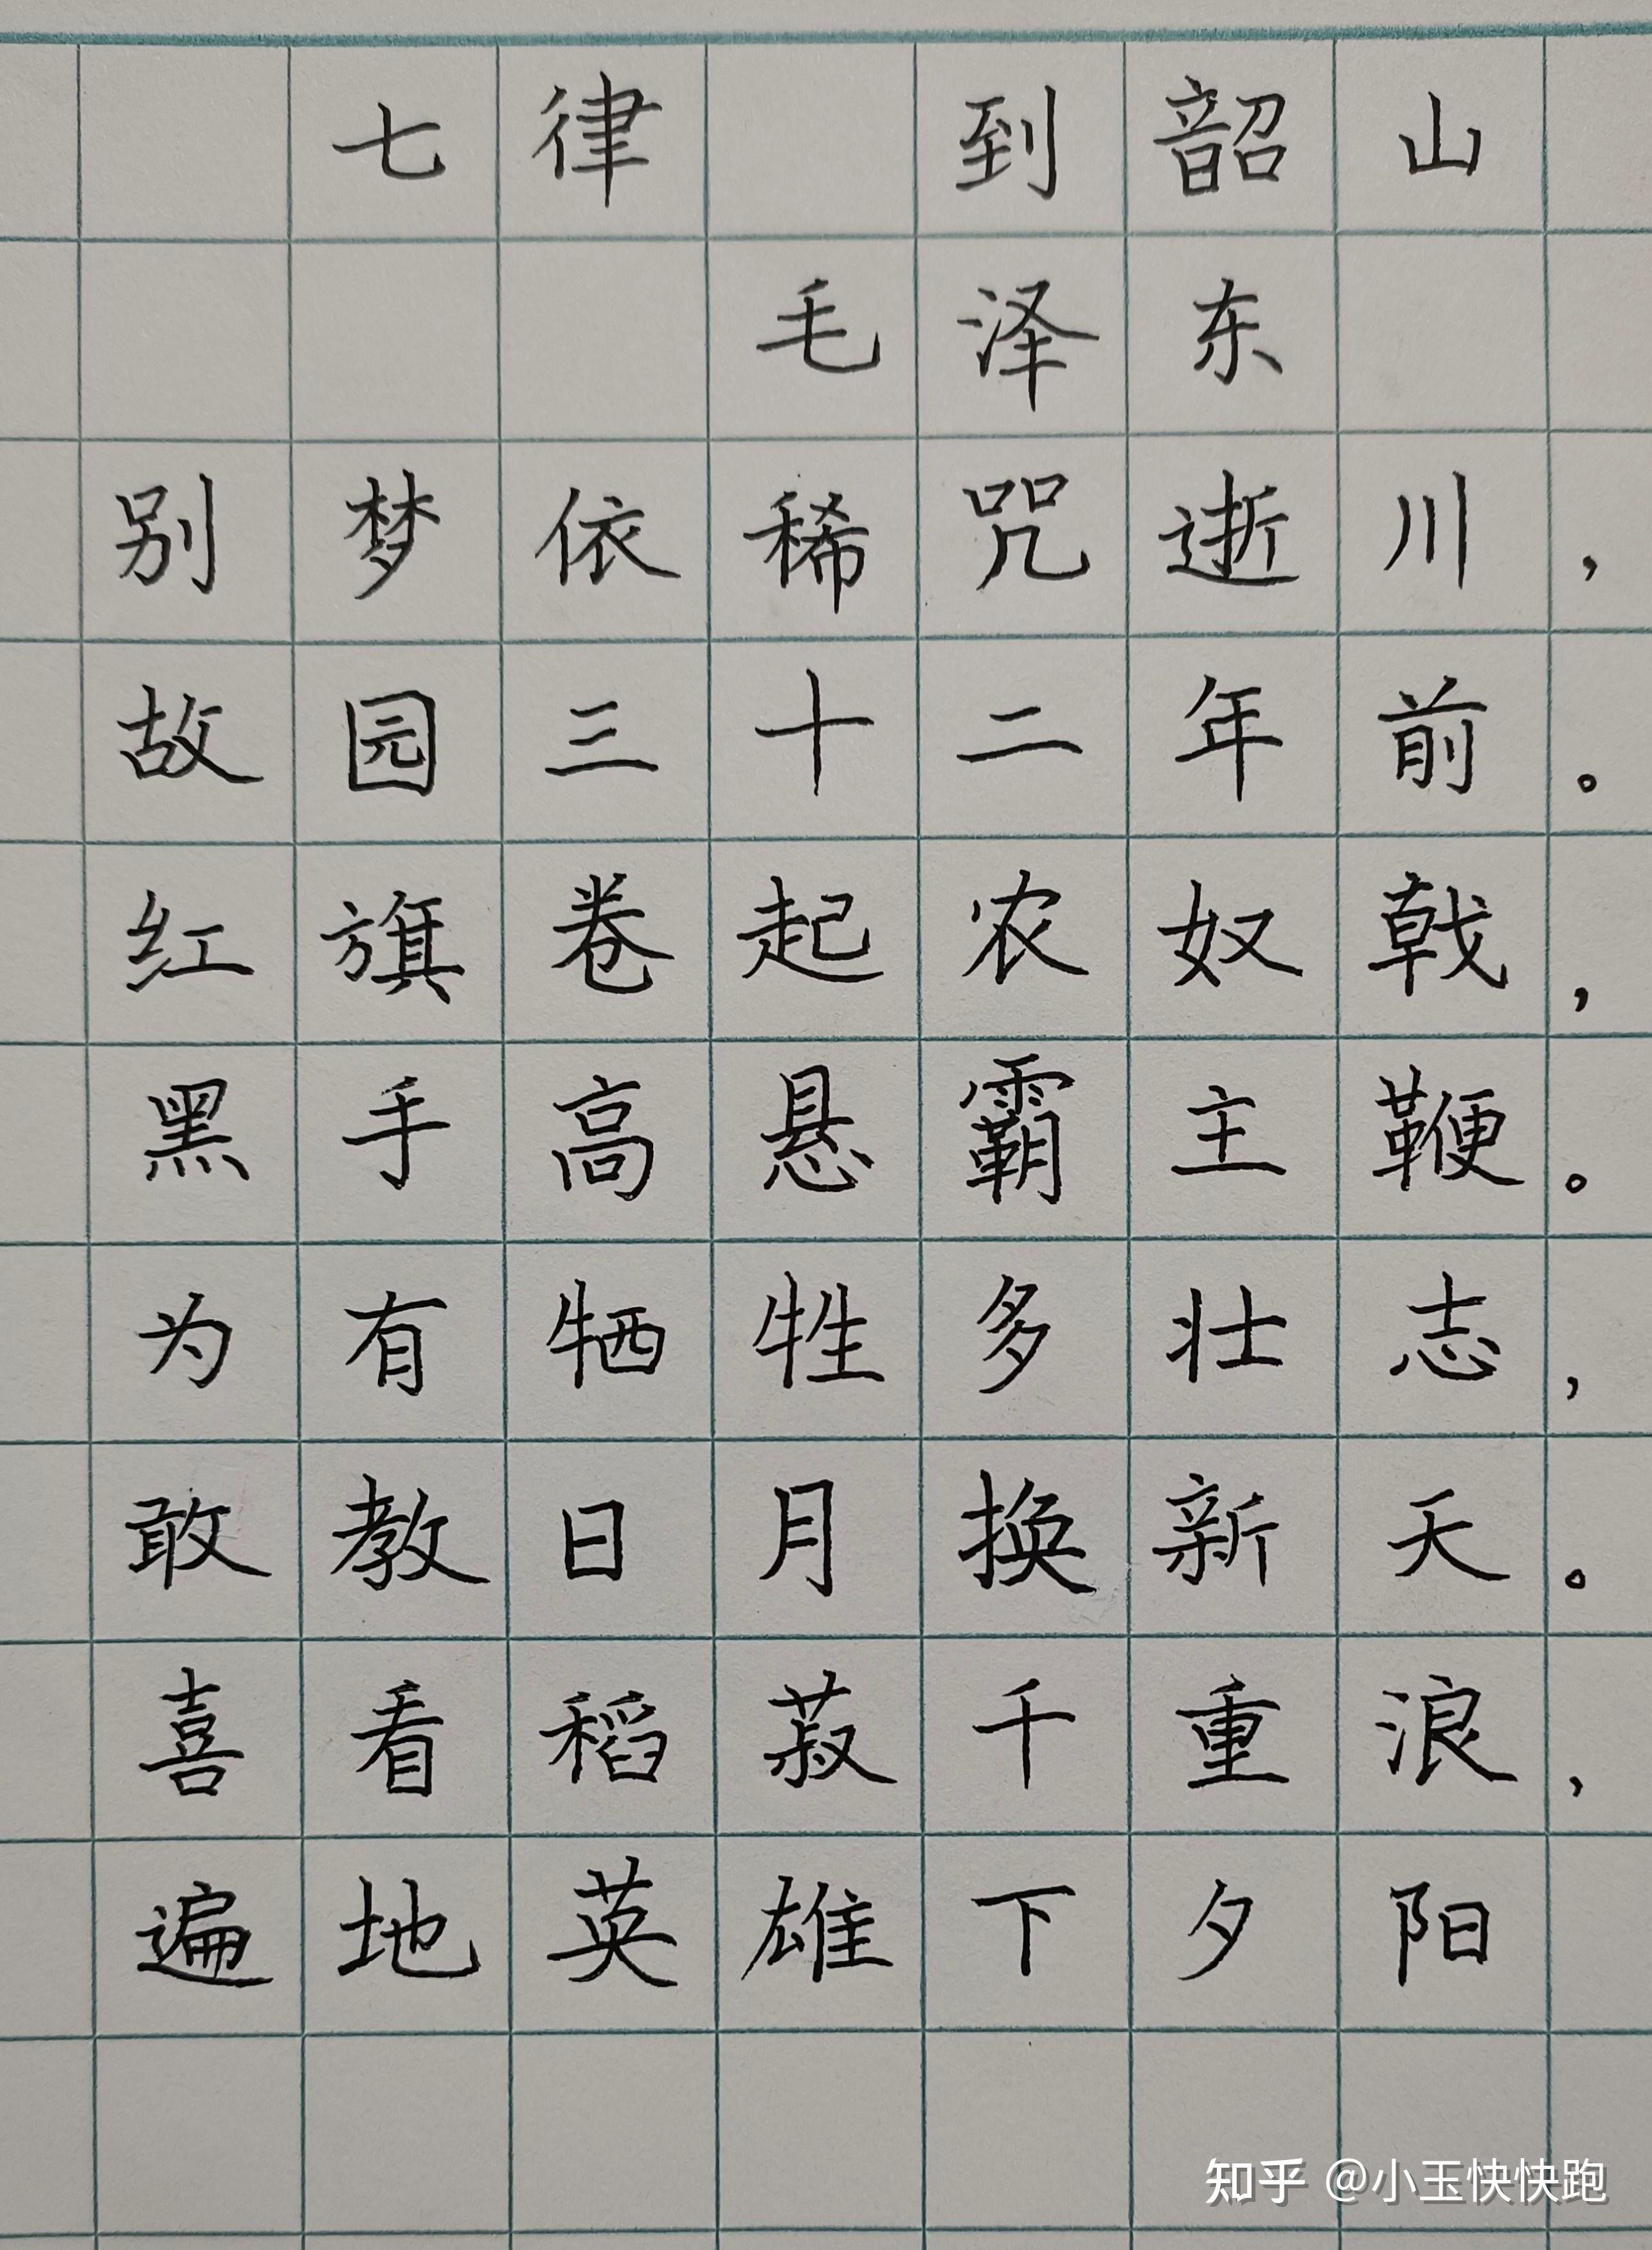 七律 到韶山
毛泽东
别梦依稀咒逝川，
故园三十二年前。
红旗卷起农奴戟，
黑手高悬霸主鞭。
为有牺牲多壮志，
敢教日月换新天。
喜看稻菽千重浪，
遍地英雄下夕阳
知乎 @小玉快快跑